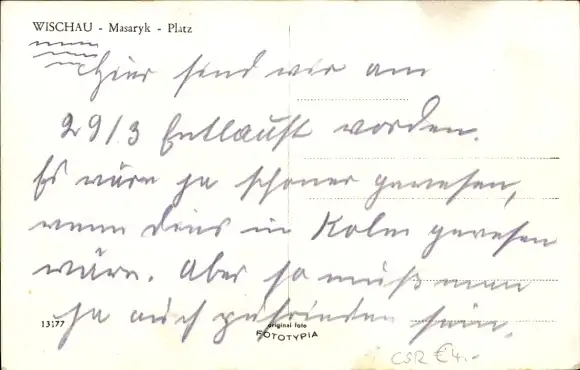 WISCHAU - Masaryk - Platz
Hier sind wir am
29/3 Entlaust worden.
Es wäre ja schöner gewesen,
wenn dies in Köln gewesen
wäre. Aber so muß man
ja auch zufrieden sein.
13177
original foto
FOTOTYPIA
CSR € 4.-